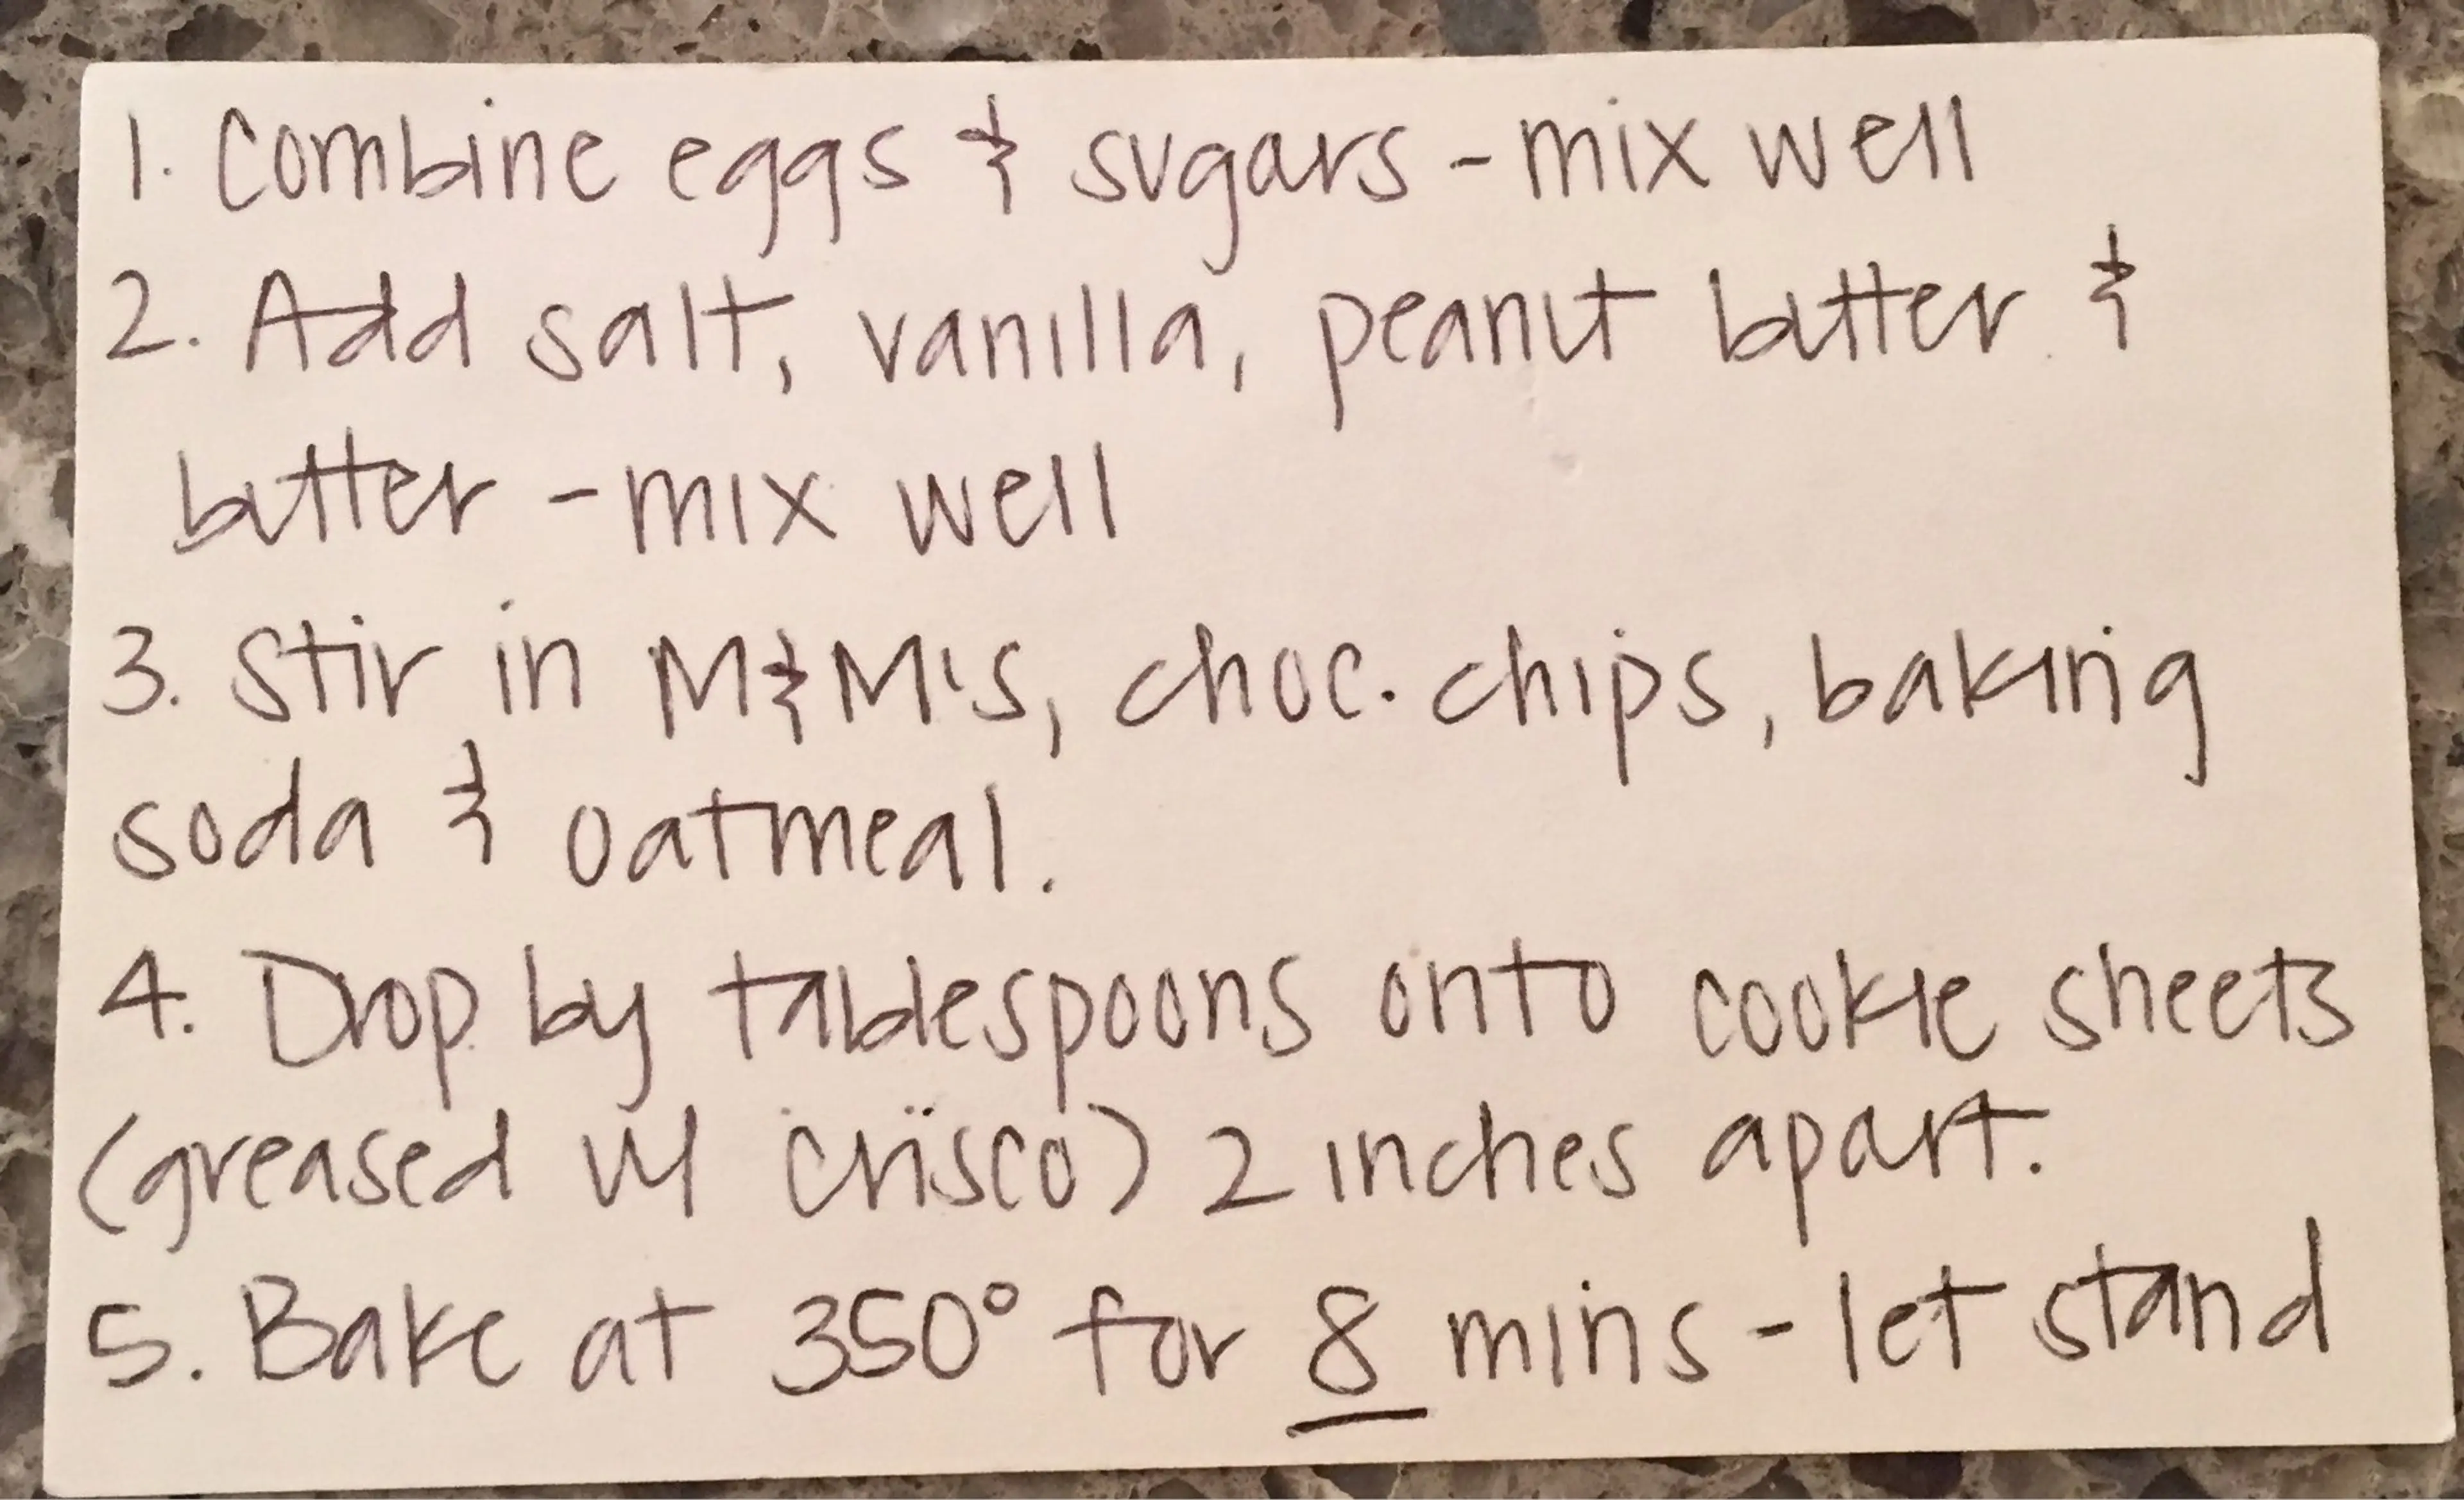 1. Combine eggs & sugars - mix well
2. Add salt, vanilla, peanut butter &
butter - mix well
3. Stir in M&M's, choc. chips, baking
soda & oatmeal.
4. Drop by tablespoons onto cookie sheets
(greased w/ crisco) 2 inches apart.
5. Bake at 350° for 8 mins - let stand